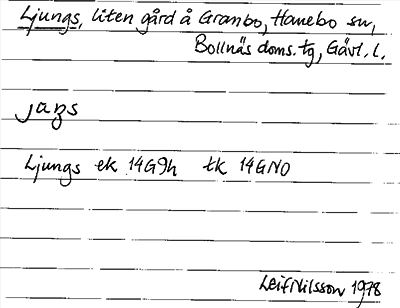 Ljungs, liten gård å Granbo, Hanebo sn,
Bollnäs doms.tg, Gävl. l.
jaŋs
Ljungs ek 14G9h tk 14GNO
Leif Nilsson 1978